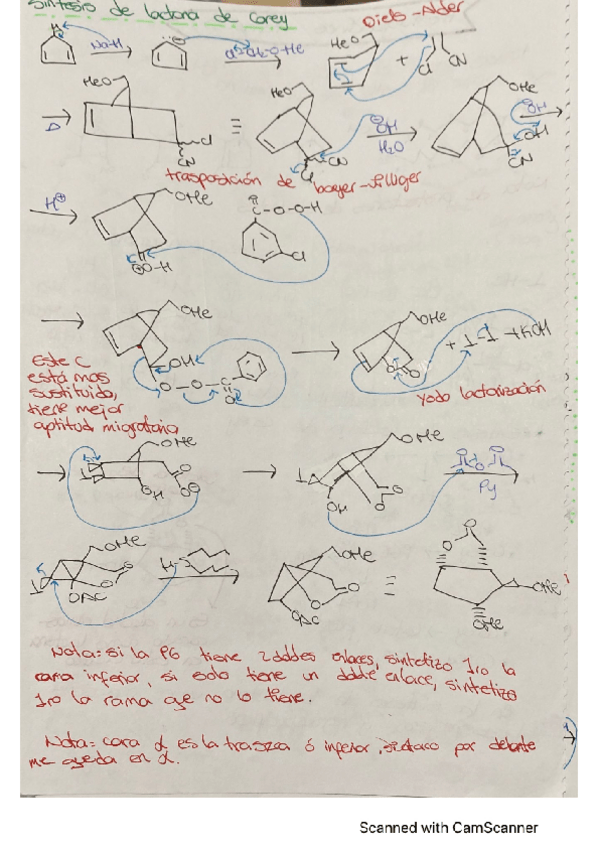 Síntesis de lactona de Corey
Diels-Alder
Na-H
MeO
+
Cl
CN
Δ
MeO
Cl
CN
≡
MeO
CN
Cl
OH
H2O
OMe
OH
OH
CN
trasposición de bayer-villiger
H⊕
OMe
O-H
C-O-O-H
Cl
OMe
OH
O-O-C
O
OMe
O
O
+ I-I + KOH
Yodo lactonización
Este C
está mas
sustituido,
tiene mejor
aptitud migratoria
OMe
I
OH
O
O
OMe
I
OH
O
O
Py
OMe
I
OAc
O
O
OMe
OAc
O
O
≡
O
O
OMe
OMe
Nota: si la PG tiene 2 dobles enlaces, sintetizo 1ro la
cara inferior, si solo tiene un doble enlace, sintetizo
1ro la rama que no lo tiene.
Nota: cara α es la trasera ó inferior, si ataco por delante
me queda en α.
Scanned with CamScanner